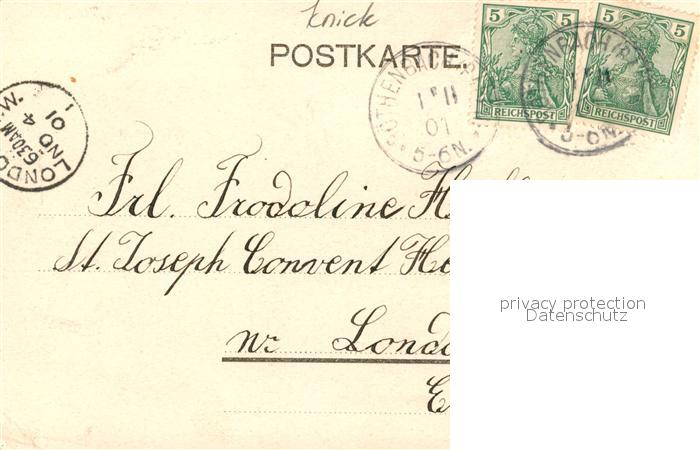 knick
POSTKARTE.
5 5
5 5
REICHSPOST
REICHSPOST
1 11
01
5-6N.
5-6N.
LONDO
W.
630AM
4
01
1
Frl. Frodoline
St. Joseph Convent
nr
privacy protection
Datenschutz